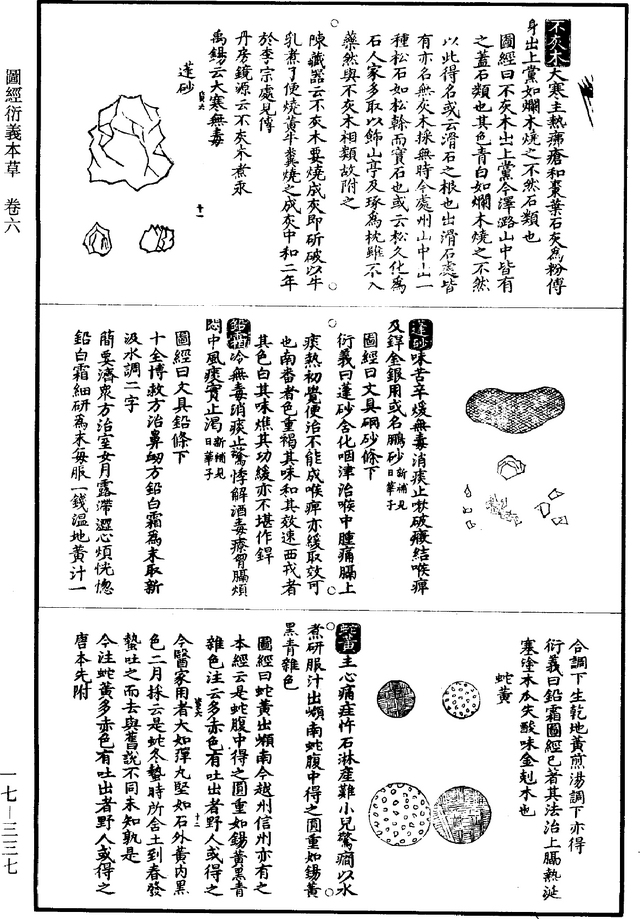 圖經衍義本草　卷六
一七—三三七
不灰木大寒主熱㾦瘡和棗葉石灰爲粉傅
身出上黨如爛木燒之不然石類也
圖經曰不灰木出上黨今澤潞山中皆有
之蓋石類也其色青白如爛木燒之不然
以此得名或云滑石之根也出滑石處皆
有亦名無灰木採無時今處州山中出一
種松石如松榦而實石也或云松久化爲
石人家多取以飾山亭及琢爲枕雖不入
藥然與不灰木相類故附之
陳藏器云不灰木要燒成灰即斫破以牛
乳煮了便燒黃牛糞燒之成灰中和二年
於李宗處見傳
丹房鏡源云不灰木煮汞
禹錫云大寒無毒
蓬砂
十一
蓬砂味苦辛煖無毒消痰止嗽破癥結喉痹
及銲金銀用或名鵬砂新補見日華子
圖經曰文具硇砂條下
衍義曰蓬砂含化咽津治喉中腫痛膈上
痰熱初覺便治不能成喉痹亦緩取效可
也南番者色重褐其味和其效速西戎者
其色白其味焦其功緩亦不堪作銲
鉛霜冷無毒消痰止驚悸解酒毒療胷膈煩
悶中風痰實止渴新補見日華子
圖經曰文具鉛條下
十全博救方治鼻衂方鉛白霜爲末取新
汲水調一字
簡要濟衆方治室女月露滯澀心煩恍惚
鉛白霜細研爲末每服一錢溫地黃汁一
合調下生乾地黃煎湯調下亦得
衍義曰鉛霜圖經已著其法治上膈熱涎
塞塗木瓜失酸味金剋木也
蛇黃
蛇黃主心痛疰忤石淋產難小兒驚癇以水
煮研服汁出嶺南蛇腹中得之圓重如錫黃
黑青雜色
圖經曰蛇黃出嶺南今越州信州亦有之
本經云是蛇腹中得之圓重如錫黃黑青
雜色注云多赤色有吐出者野人或得之
十二
今醫家用者大如彈丸堅如石外黃内黑
色二月採云是蛇冬蟄時所含土到春發
蟄吐之而去與舊說不同未知孰是
今注蛇黃多赤色有吐出者野人或得之
唐本先附